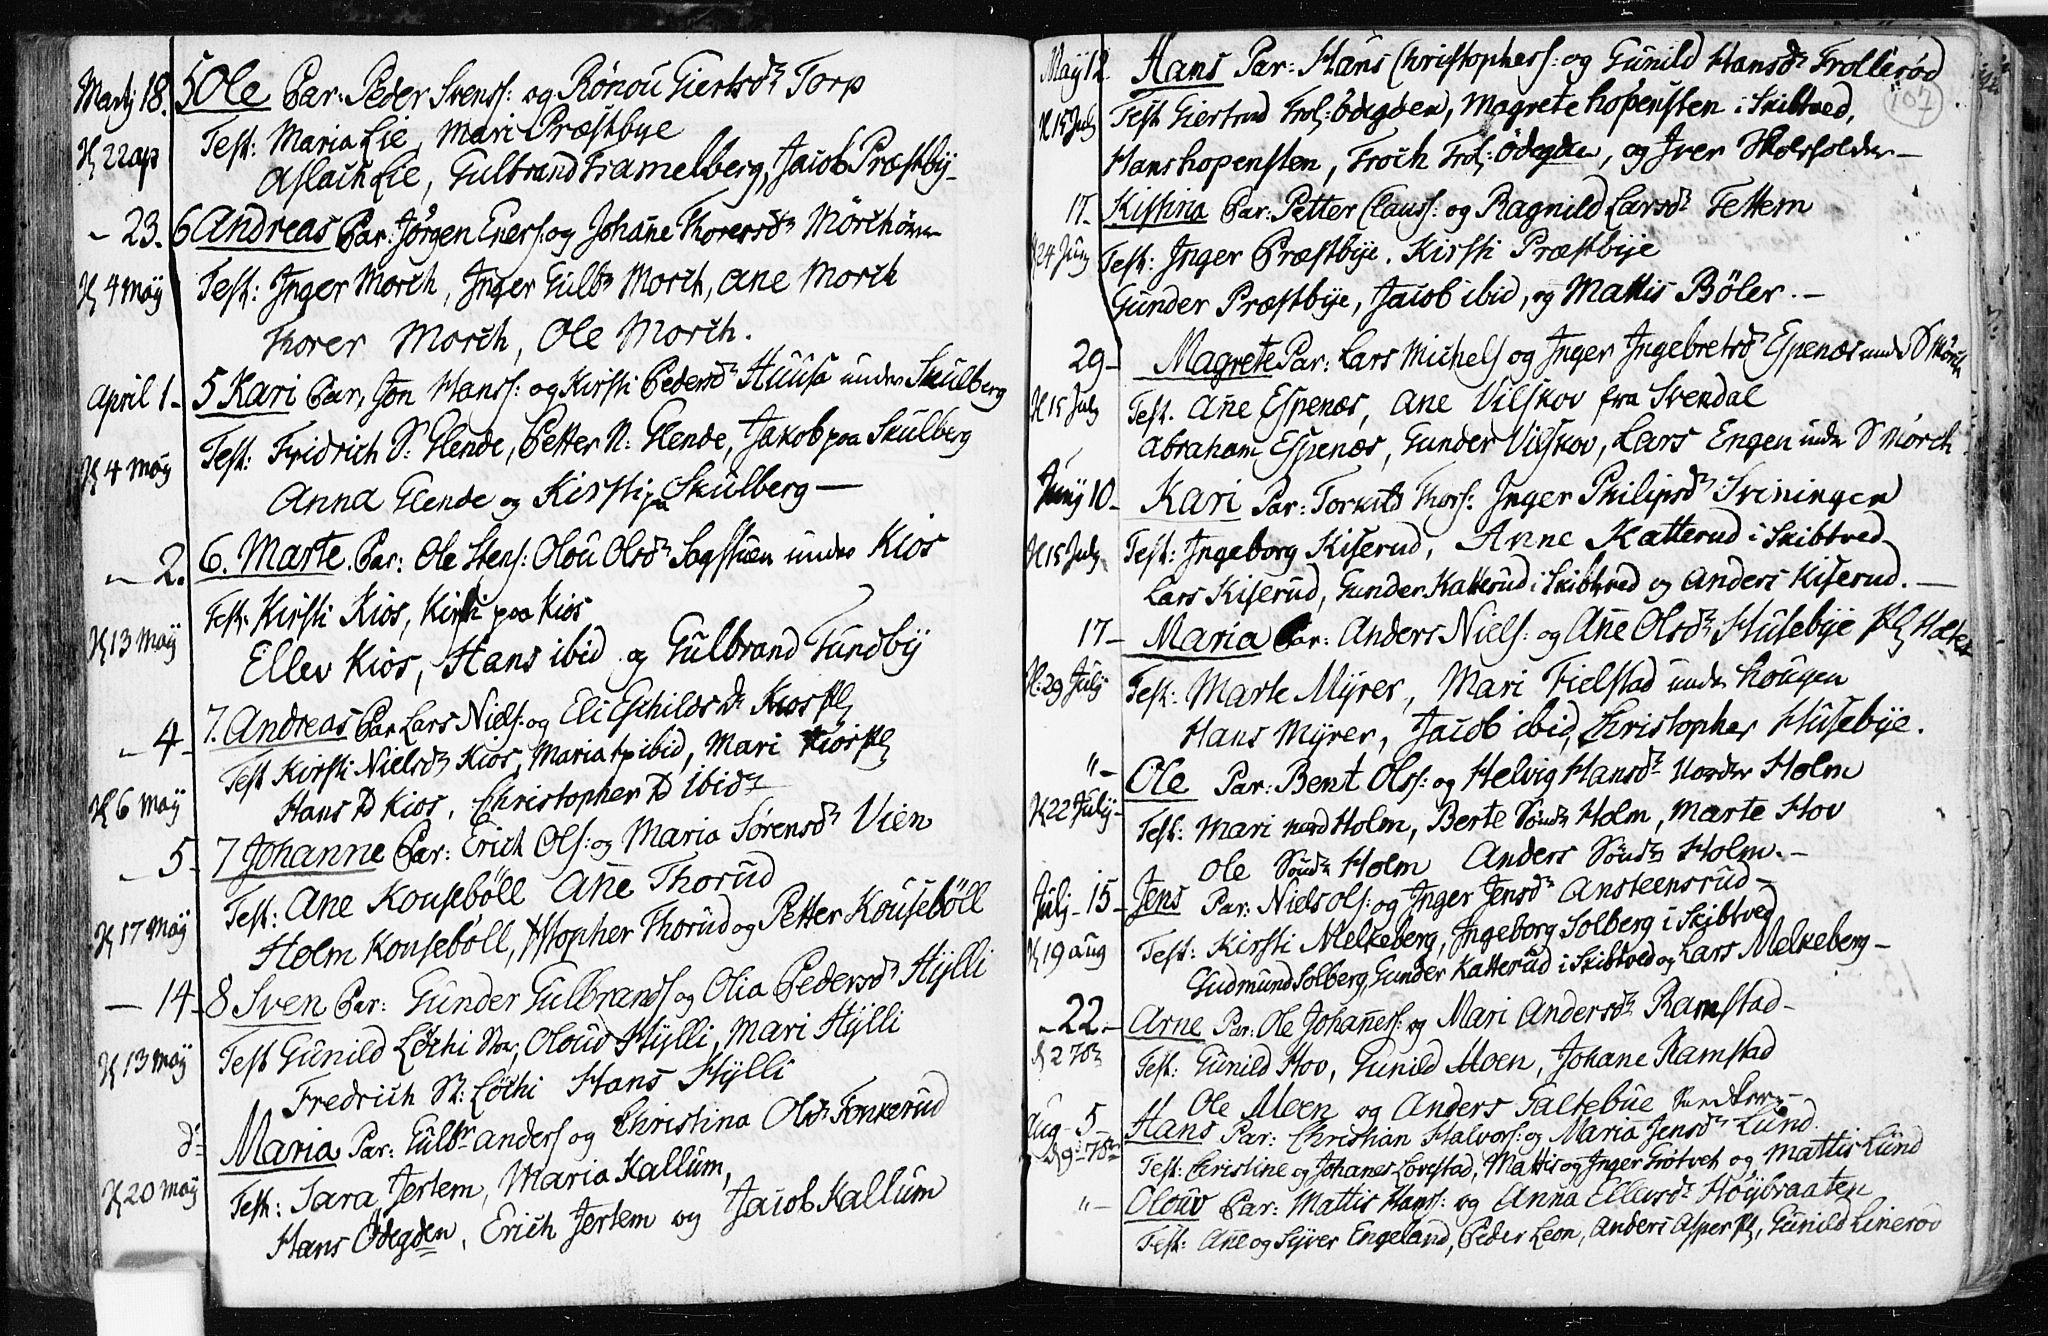 Martj 18. 5 Ole Par: Peder Svens: og Rönou Giertsdr Torp
Test: Maria Lie, Mari Præstbye
K 22 ap
Aslach Lie, Gulbrand Framelberg, Jacob Præstby-
- 23. 6 Andreas Par: Jörgen Eners: og Johane Thorersdr
K 4 May Test: Inger Morch, Inger Gulbr Morch, Ane Morch
Thorer Morch, Ole Morch.
April 1- 5 Kari Par, Jon Hanss: og Kirsti Pedersdr Huusa under Skulberg
K 4 May Test: Fridrich S: Glende, Petter N: Glende, Jakob paa Skulberg
Anna Glende og Kirsti pa Skulberg —
- 2. 6. Marte. Par: Ole Stens: Olou Olsdr Sagstuen under Kios
Test: Kirsti Kios, Kirsti paa Kios
K 13 May Ellev Kios, Hans ibid og Gulbrand Tundby
- 4- 7. Andreas Par Lars Niels: og Eli Eschildsdr Kios Pl
Test Kirsti Nielsdr Kios, Maria ibid, Mari Kios Pl
K 6 May Hans Kios, Christopher ibid
- 5- 7 Johanne Par: Erich Ols: og Maria Sörensdr Vien
Test: Ane Kouseböll Ane Thorud
K 17 May Holm Kousebøll, Xstopher Thorud og Petter Kousebøll
— 14- 8 Sven Par: Gunder Gulbrands og Olia Pedersdr Hylli
Test Gunild Löchi, Olouv Hylli, Mari Hylli
K 13 May Fredrich Löchi Hans Hylli
d- Maria Par: Gulbr anders og Christina Olsdr Fonkerud
K 20 May Test: Sara Jertem, Maria Kallum,
Hans Ödegden, Erich Jertem og Jacob Kallum
May 12 Hans Par: Hans Christophers: og Gunild Hansdr Trollerød
107
K 15 July Test Giertrud Trol: Ödegden, Magrete hopensten i Skibtved,
Hans hopensten, Troch Trol: Ödegden, og Iver
17- Kistina Par: Petter Clauss: og Ragnild Larsdr Tettem
K 24 Juny Test: Inger Præstbye. Kirsti Præstbije
Gunder Præstbye, Jacob ibid, og Mattis Böler. —
29- Magrete Par: Lars Michels og Inger Ingebretsdr Espenæs under S Mörch
K 15 July Test. Ane Espenæs, Ane Vilskov fra Svendal
Abraham Espenæs, Gunder Vilskov, Lars Engen under S Mörch
Juny 10- Kari Par: Thors: Inger Philipsdr Sveningen
K 15 July Test: Ingeborg Kiserud, Anne Katterud i Skibtved
Lars Kiserud, Gunder Katterud i Skibtved og Anders Kiserud. —
17- Maria Par: Anders Niels: og Ane Olsdr Husebye Pl
K: 29 July Test: Marte Myrer, Mari Fielstad under hougen
Hans Myrer, Jacob ibid, Christopher Husebye.
"- Ole Par: Bent Olss: og Helvig Hansdr Norder Holm
K 22 July- Test: Mari Nord Holm, Berte Søndr Holm, Marte Hov
Ole Søndr Holm Anders Søndr Holm. -
July- 15- Jens Par: Niels Ols: og Inger Jensdr Ansteensrud-
K 19 aug Test: Kirsti Melkeberg, Ingeborg Solberg i Skibtved
Gudmund Solberg, Gunder Katterud i Skibtved og Lars Melkeberg-
- 22. - Arne Par: Ole Johaness: og Mari Andersdr Ramstad-
K 2 7br Test: Gunild Hov, Gunild Moen, Johane Ramstad
Ole Moen og Anders Taltebue
Aug- 5- Hans Par: Christian Halvors: og Maria Jensdr Lund.
9- 7br Test: Christine og Johanes Lovestad, Mattis og Inger Trötvet og Mattis Lund
"- Olouv Par: Mattis Hans: og Anna Ellevsdr Höybraaten
Test: Ane og Syver Engeland, Peder Leon, Anders Asper Pl, Gunild Lineröd